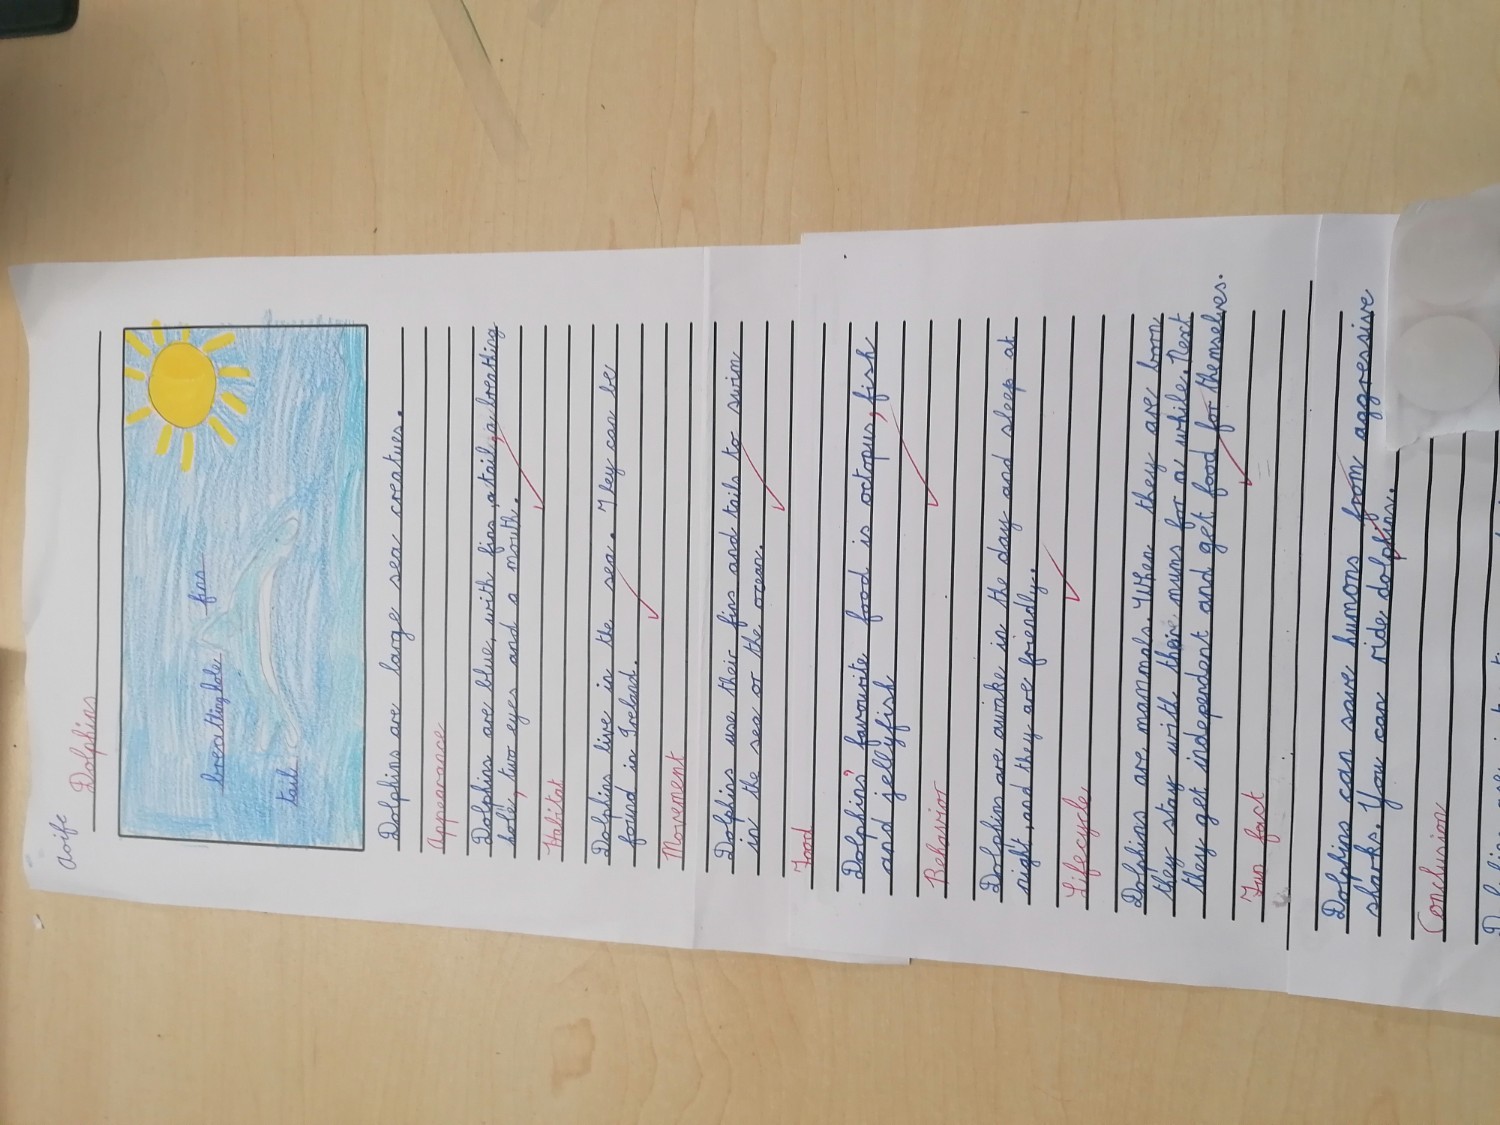 Aoife
Dolphins
breathing hole
fins
tail
Dolphins are large sea creatures.
Appearance
Dolphins are blue, with fins, a tail, a breathing
hole, two eyes and a mouth.
Habitat
Dolphins live in the sea. They can be
found in Ireland.
Movement
Dolphins use their fins and tails to swim
in the sea or the ocean.
Food
Dolphins' favourite food is octopus, fish
and jellyfish
Behavior
Dolphins are awake in the day and sleep at
night, and they are friendly.
Lifecycle
Dolphins are mammals. When they are born
they stay with their mums for a while. Next
they get independent and get food for themselves.
Fun fact
Dolphins can save humans from aggressive
sharks. You can ride dolphins.
Conclusion